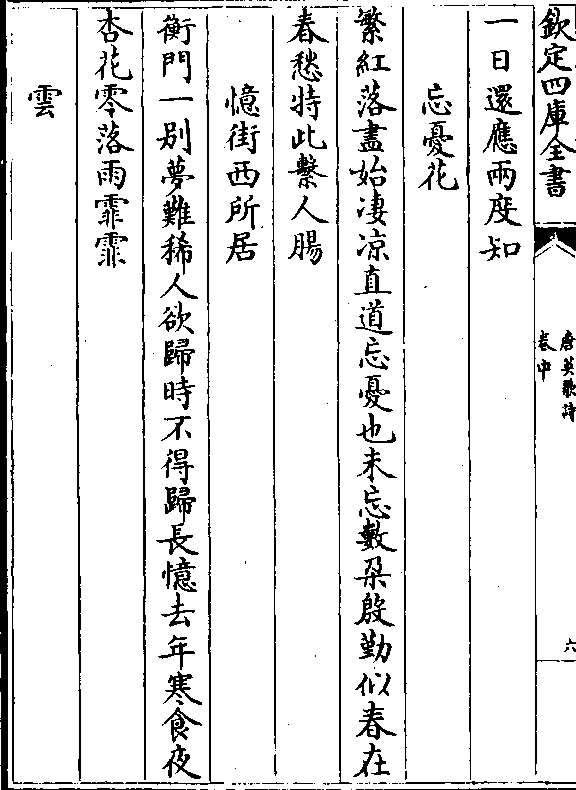 欽定四庫全書
唐英歌詩
卷中
六
一日還應兩度知
忘憂花
繁紅落盡始凄凉直道忘憂也未忘數朶殷勤似春在
春愁特此繫人腸
憶街西所居
衡門一别夢難稀人欲歸時不得歸長憶去年寒食夜
杏花零落雨霏霏
雲